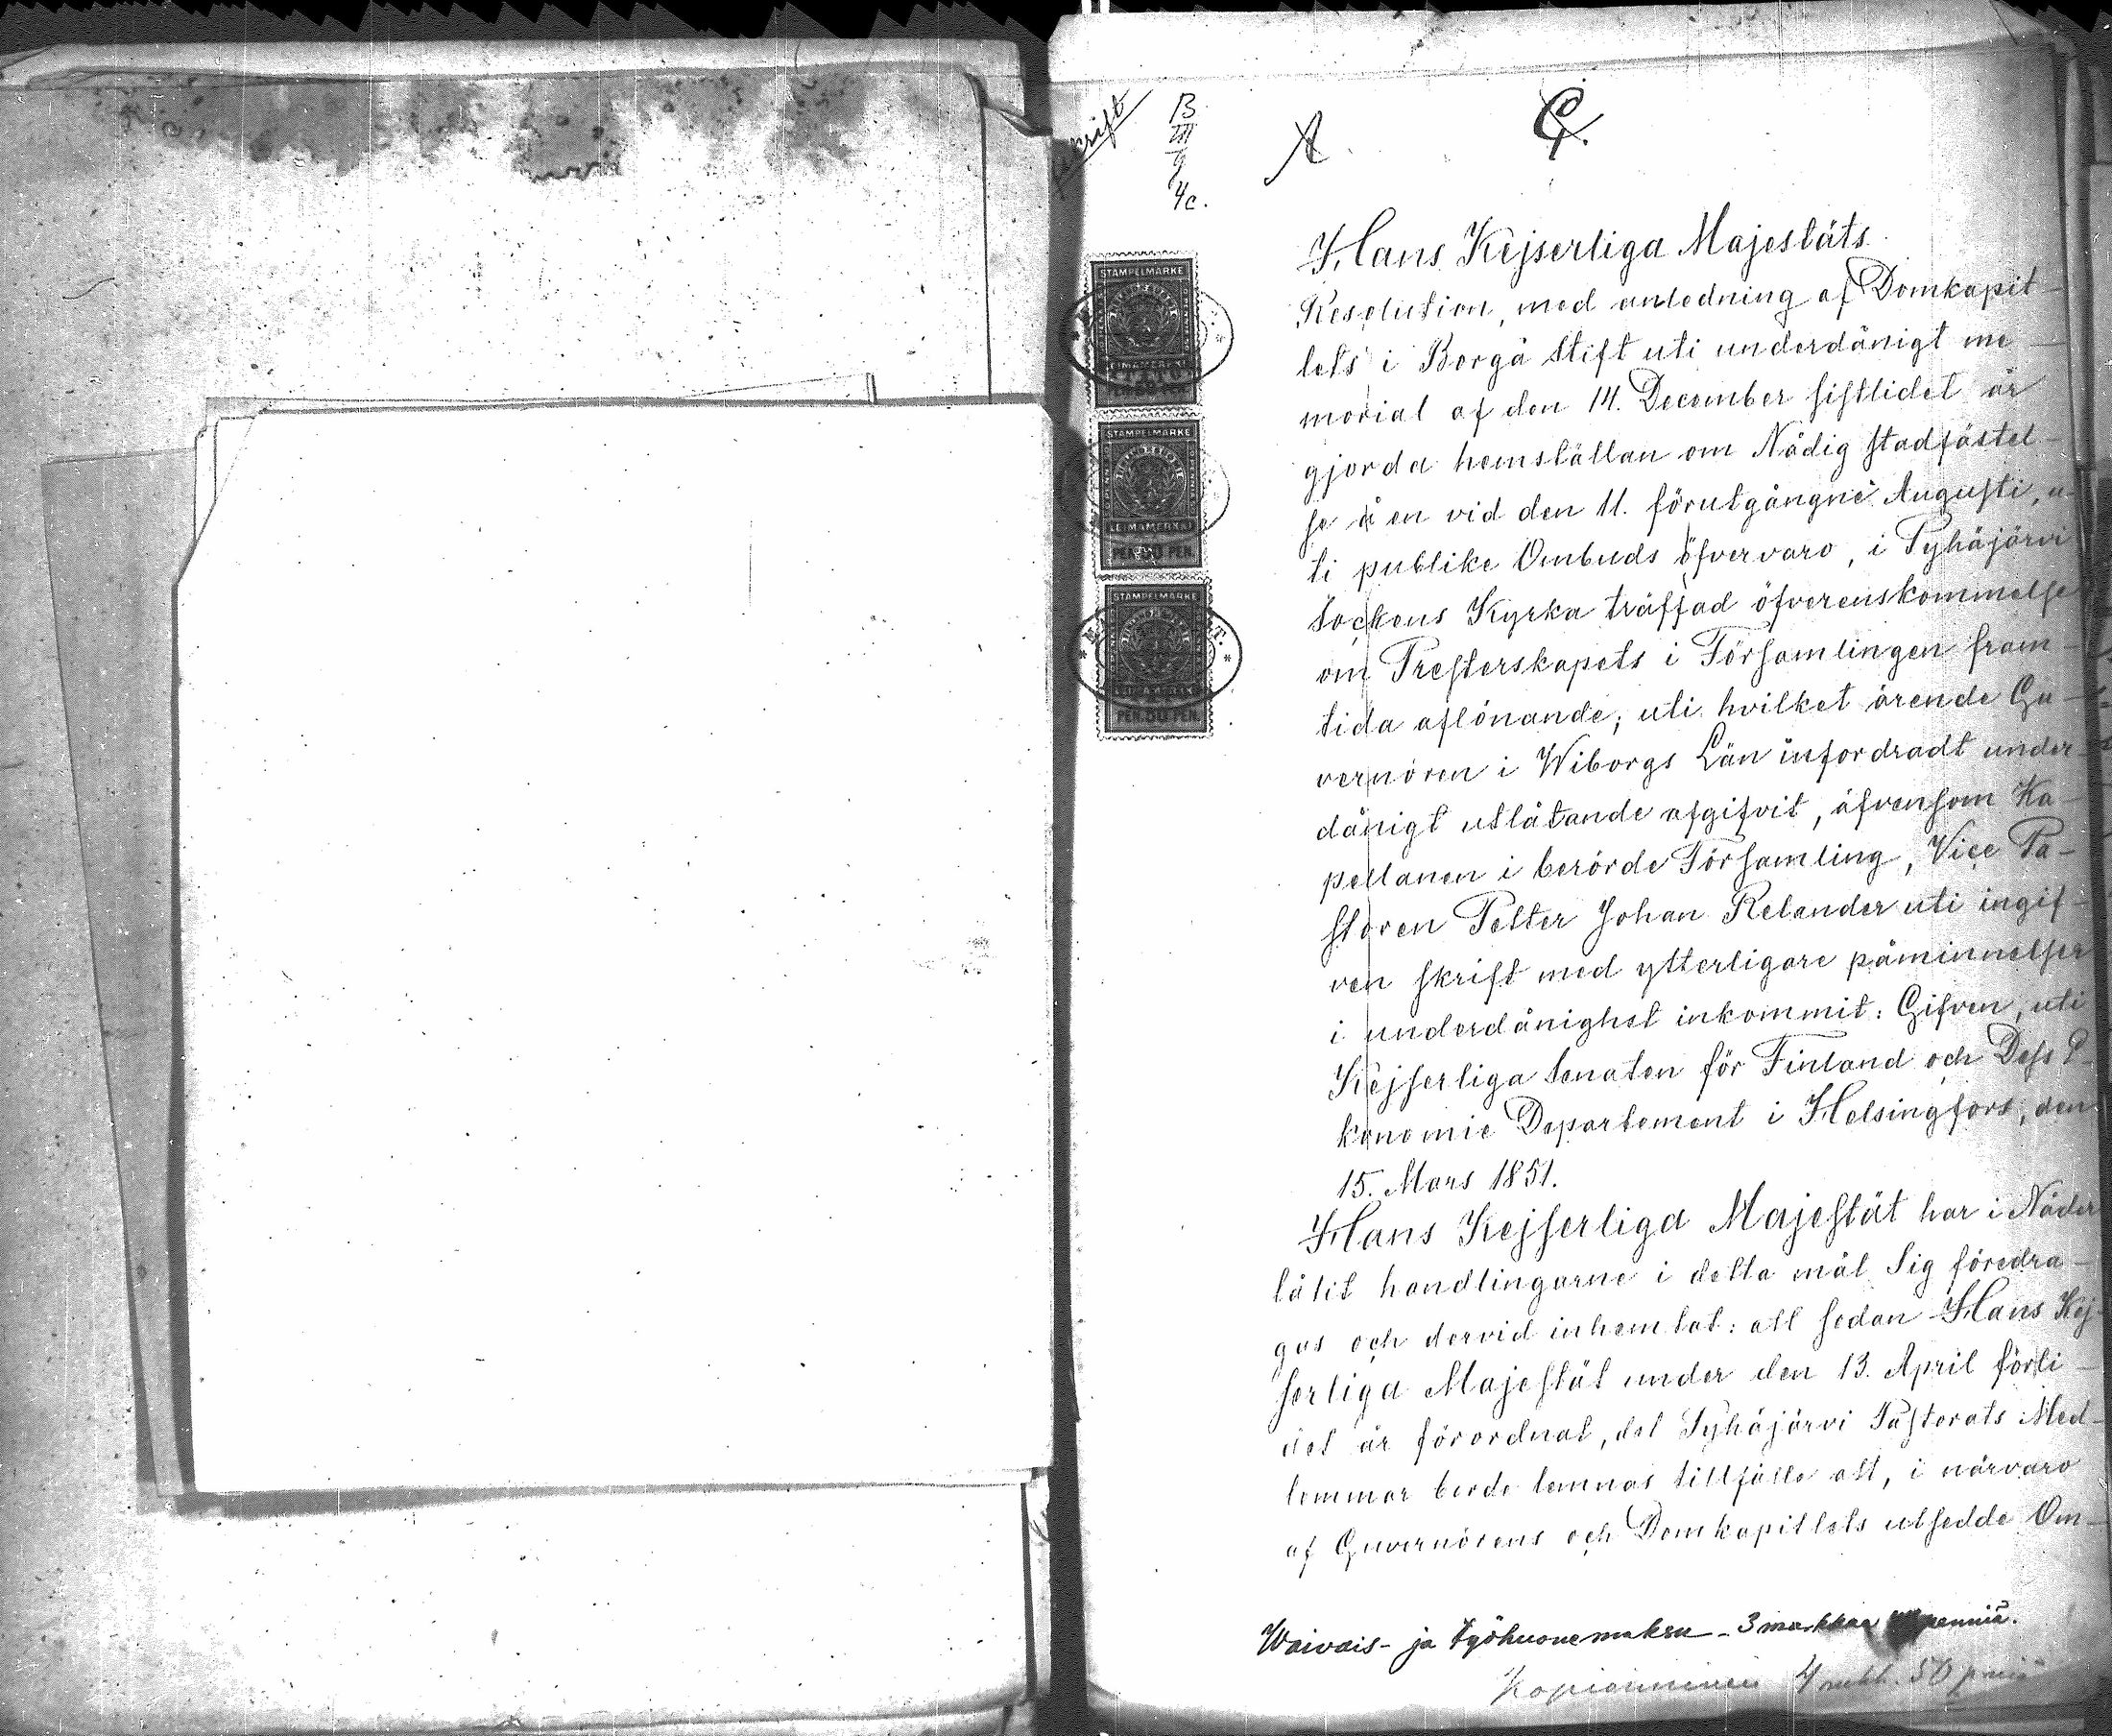 B
III
g
4c.
A.
C.
STÄMPELMÄRKE
LEIMAMERKKI
STÄMPELMÄRKE
LEIMAMERKKI
PEN. 50 PEN.
STÄMPELMÄRKE
LEIMAMERKKI
PEN. 50 PEN.
Hans Kejserliga Majestäts
Resolution, med anledning af Domkapit-
lets i Borgå Stift uti underdånigt me-
morial af den 14. December sistlidet år
gjorda hemställan om Nådig stadfästel-
se å en vid den 11. förutgångne Augusti, u-
ti publike Ombuds öfvervaro, i Pyhäjärvi
Sockens Kyrka träffad öfverenskommelse
om Presterskapets i Församlingen fram-
tida aflönande; uti hvilket ärende Gu-
vernören i Wiborgs Län infordradt under-
dånigt utlåtande afgifvit, äfvensom Ka-
pellanen i berörde Församling, Vice Pa-
storen Petter Johan Relander uti ingif-
ven skrift med ytterligare påminnelser
i underdånighet inkommit: Gifven, uti
Kejserliga Senaten för Finland och Dess E-
konomie Departement i Helsingfors, den
15. Mars 1851.
Hans Kejserliga Majestät har i Nåder
låtit handlingarne i detta mål Sig föredra-
gas och dervid inhemtat: att sedan Hans Kej-
serliga Majestät under den 13. April förli-
det år förordnat, det Pyhäjärvi Pastorats Med-
lemmar borde lemnas tillfälle att, i närvaro
af Guvernörens och Domkapitlets utsedde Om-
Waivais- ja työhuonemaksu - 3 markkaa penniä.
Kopioiminen 4 mkk. 50 pniä